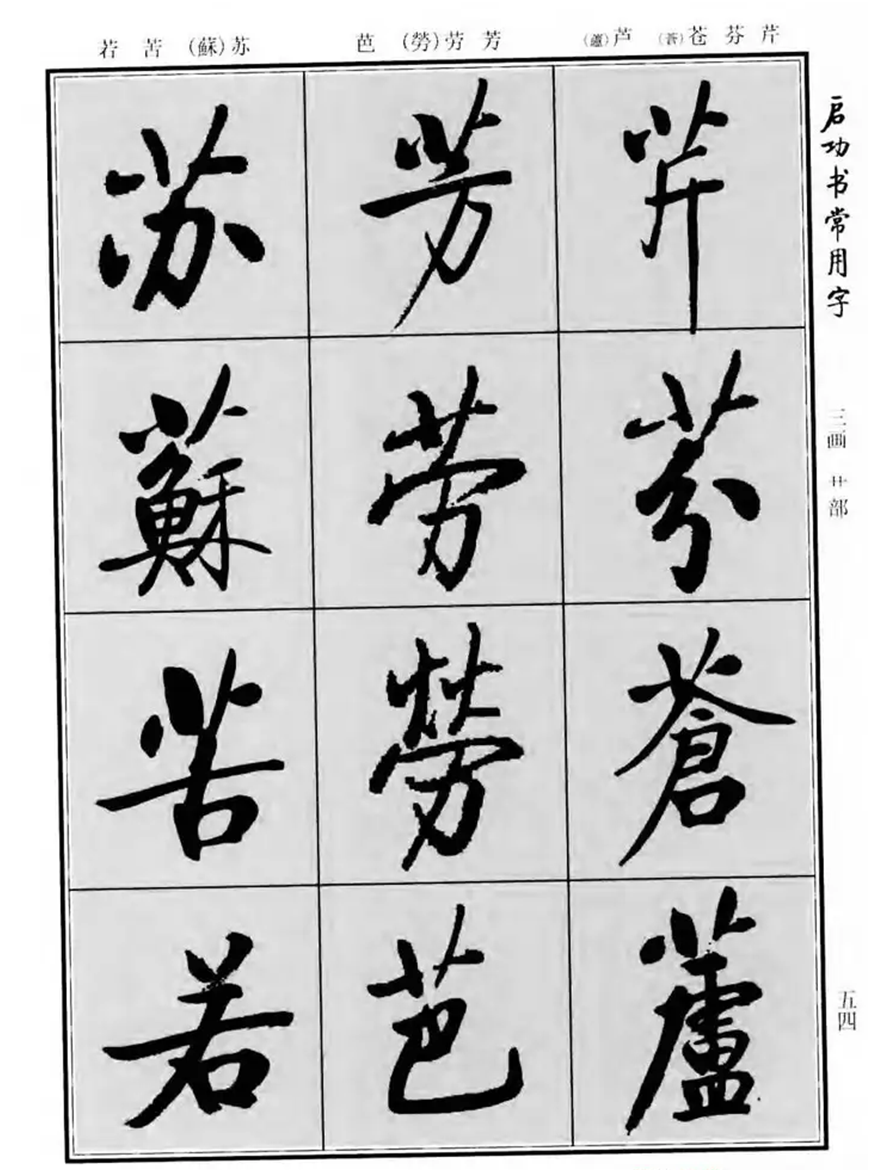 启功书常用字
三画 艹部
五四
芹 芬 苍(蒼) 芦(蘆)
芳 劳(勞) 芭
苏(蘇) 苦 若
芹
芬
蒼
蘆
芳
劳
勞
芭
苏
蘇
苦
若